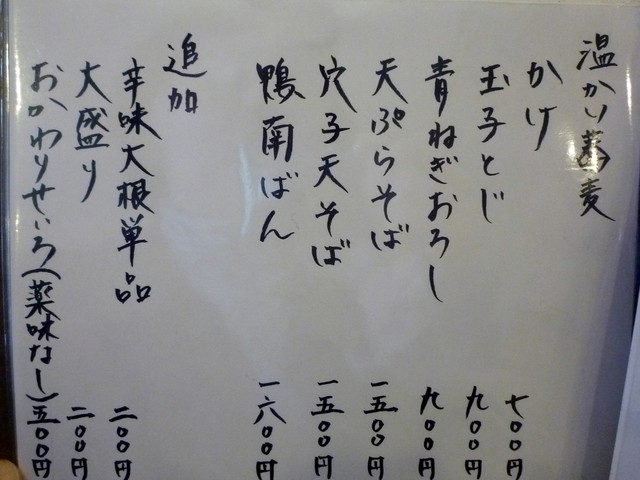 温かい蕎麦
かけ 七〇〇円
玉子とじ 九〇〇円
青ねぎおろし 九〇〇円
天ぷらそば 一五〇〇円
穴子天そば 一五〇〇円
鴨南ばん 一六〇〇円
追加
辛味大根単品 二〇〇円
大盛り 二〇〇円
おかわりせいろ(薬味なし) 五〇〇円